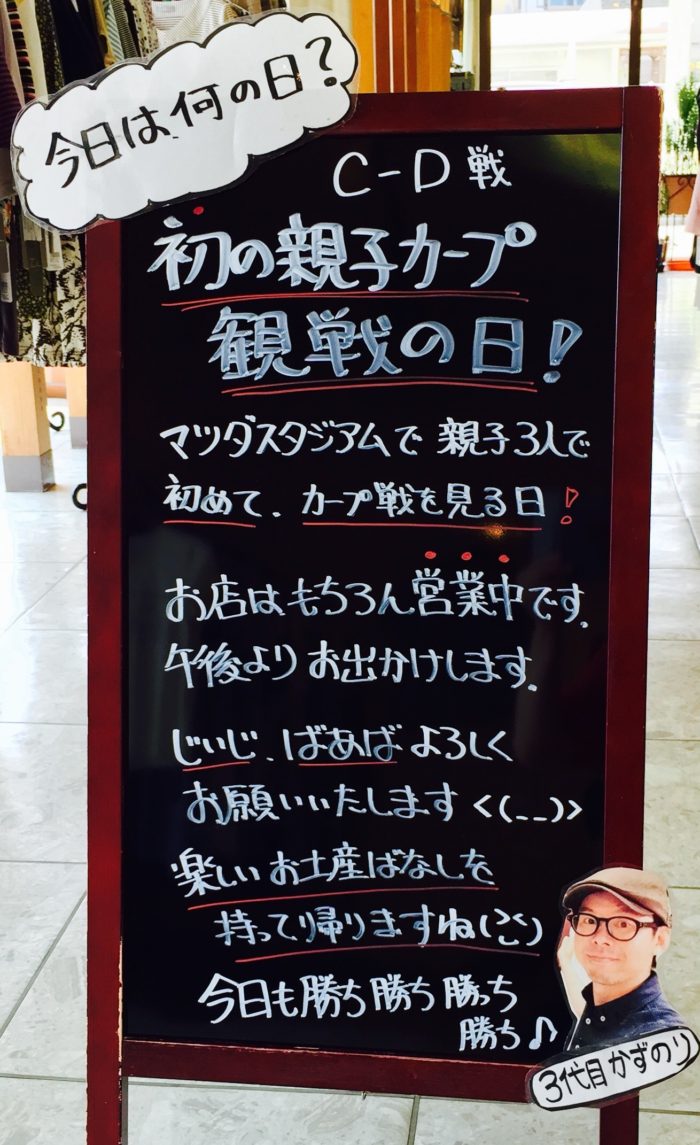 今日は何の日?
C-D戦
初の親子カープ
観戦の日!
マツダスタジアムで親子3人で
初めて、カープ戦を見る日!
お店はもちろん営業中です。
午後よりお出かけします。
じいじ、ばあばよろしく
お願いいたします<(__)>
楽しいお土産ばなしを
持って帰りますね(^^)
今日も勝ち勝ち勝っち
勝ち♪
3代目かずのり